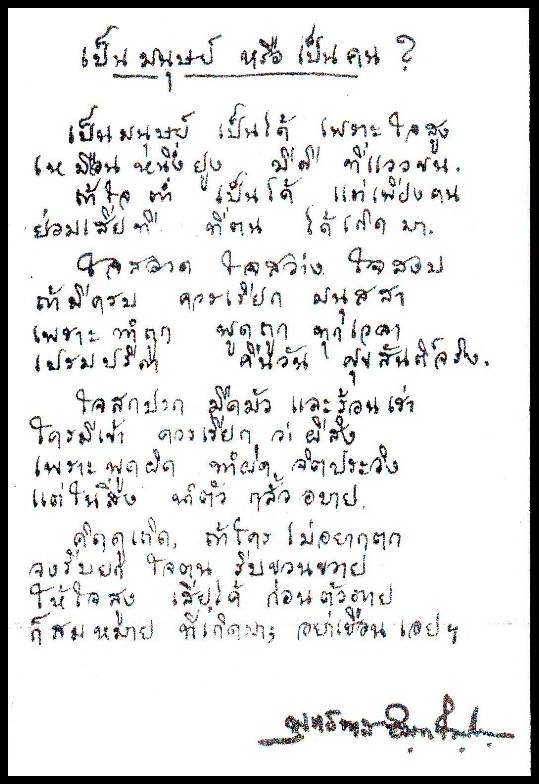 เป็นมนุษย์ หรือ เป็นคน ?
เป็นมนุษย์ เป็นได้ เพราะใจสูง
เหมือนหนึ่งยูง มีดี ที่แววขน.
ถ้าใจต่ำ เป็นได้ แต่เพียงคน
ย่อมเสียที ที่ตน ได้เกิดมา.
ใจสอาด ใจสว่าง ใจสงบ
ถ้ามีครบ ควรเรียก มนุสสา
เพราะทำถูก พูดถูก ทุกเวลา
เปรมปรีดา คืนวัน สุขสันติ์จริง.
ใจสกปรก มืดมัว และร้อนเร่า
ใครมีเข้า ควรเรียก ว่าผีสิง
เพราะพูดผิด ทำผิด จิตประวิง
แต่ในสิ่ง ทำตัว กลั้วอบาย.
คิดดูเถิด, ถ้าใคร ไม่อยากตก
จงรีบยก ใจตน รีบขวนขวาย
ให้ใจสูง เสียได้ ก่อนตัวตาย
ก็สมหมาย ที่เกิดมา; อย่าเชือนเอยฯ
พุทธทาส อินทปัญโญ